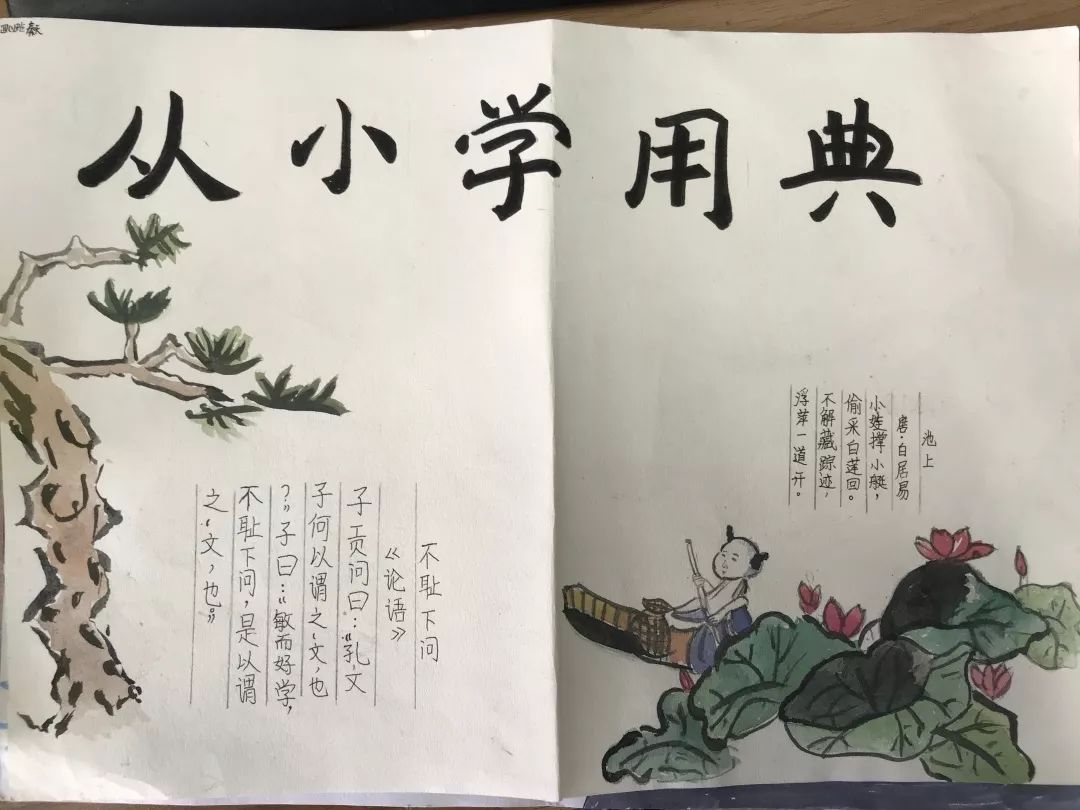 从小学用典
不耻下问
《论语》
子贡问曰：“孔文
子何以谓之‘文’也
？”子曰：“敏而好学，
不耻下问，是以谓
之‘文’也。”
池上
唐·白居易
小娃撑小艇，
偷采白莲回。
不解藏踪迹，
浮萍一道开。